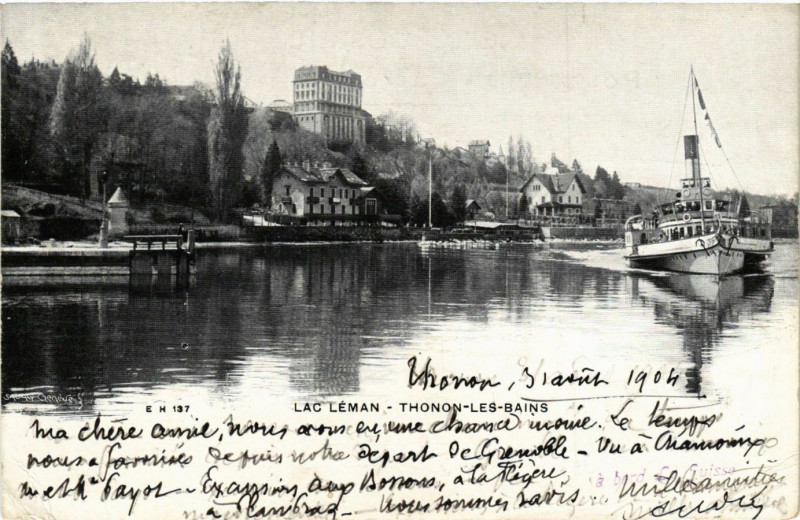 Thonon, 31 août 1904
E H 137 LAC LÉMAN - THONON-LES-BAINS
Ma chère amie, nous avons eu, une chance inouïe. Le temps
nous a favorisés depuis notre départ de Grenoble - Vu à Chamonix
M et Me Payot - Excursions aux Bossons, à la Flégère
à bord Suisse
Nous sommes ravis Mille amitiés